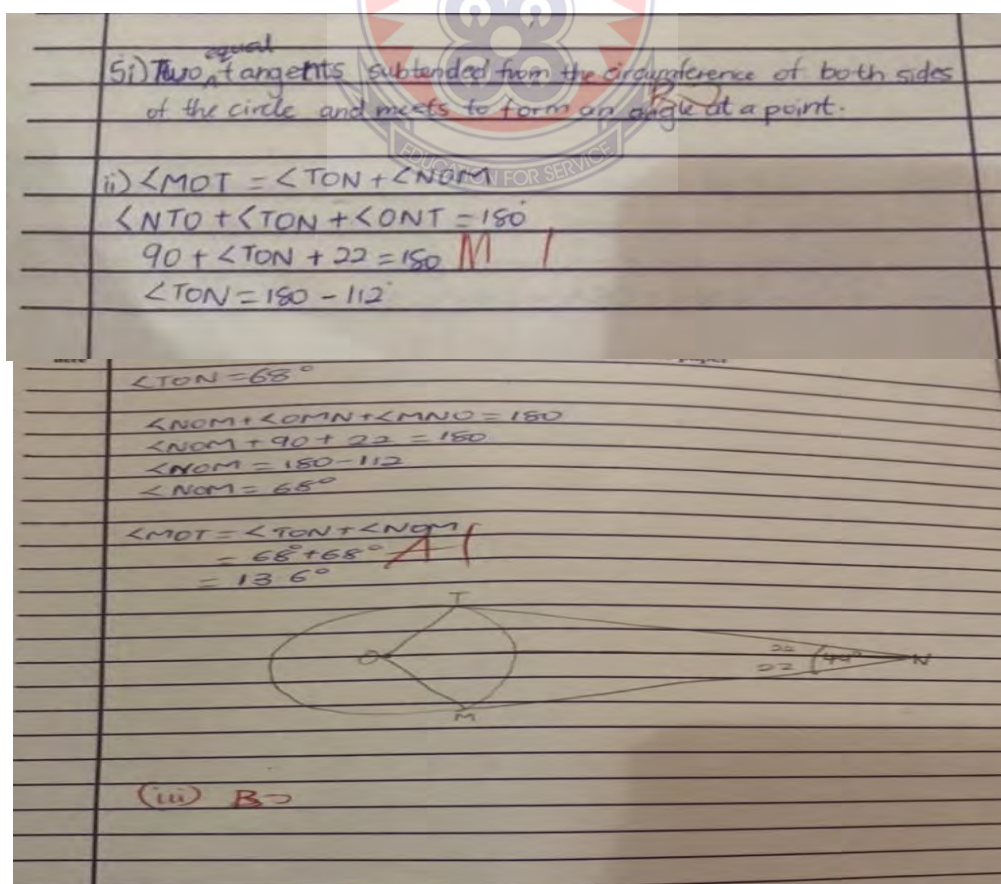 equal
5i) Two ^ tangents subtended from the circumference of both sides
of the circle and meets to form an angle at a point.
EDUCATION FOR SERVICE
ii) <MOT = <TON + <NOM
<NTO + <TON + <ONT = 180°
90 + <TON + 22 = 180 M 1
<TON = 180 - 112°
<TON = 68°
<NOM + <OMN + <MNO = 180
<NOM + 90 + 22 = 180
<NOM = 180 - 112
<NOM = 68°
<MOT = <TON + <NOM
= 68° + 68° A 1
= 136°
T
O 22 44° N
22
M
(iii) B0